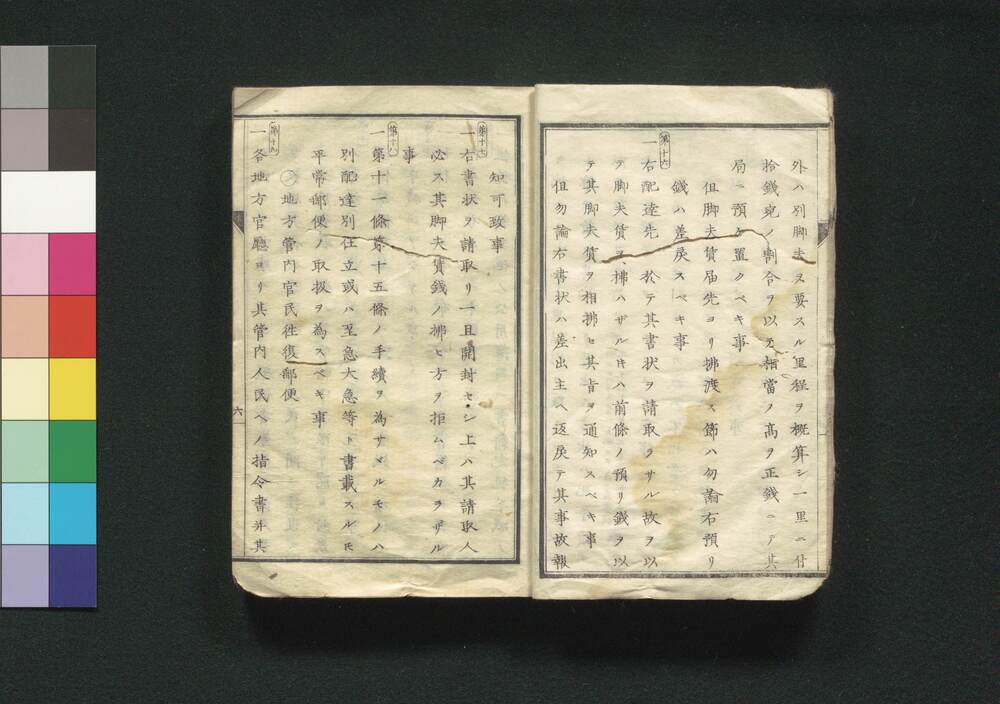 外ハ別脚夫ヲ要スル里程ヲ概算シ一里ニ付
拾錢宛ノ割合ヲ以テ相當ノ高ヲ正錢ニテ其
局ニ預ケ置クベキ事
但脚夫賃届先ヨリ拂渡ス節ハ勿論右預リ
錢ハ差戻スベキ事
第十六
一右配達先 於テ其書状ヲ請取ラサル故ヲ以
テ脚夫賃ヲ拂ハザル𪜈ハ前條ノ預リ錢ヲ以
テ其脚夫賃ヲ相拂セ其旨ヲ通知スベキ事
但勿論右書状ハ差出主ヘ返戻テ其事故報
知可致事
第十七
一右書状ヲ請取リ一旦開封セシ上ハ其請取人
必ス其脚夫賃錢ノ拂ヒ方ヲ拒ムベカラザル
事
第十八
一第十一條第十五條ノ手續ヲ為サヾルモノハ
別配達別仕立或ハ至急大急等ト書載スル𪜈
平常郵便ノ取扱ヲ為スベキ事
○地方管内官民往復郵便
第十九
一各地方官廳ヨリ其管内人民ヘノ指令書并其
六